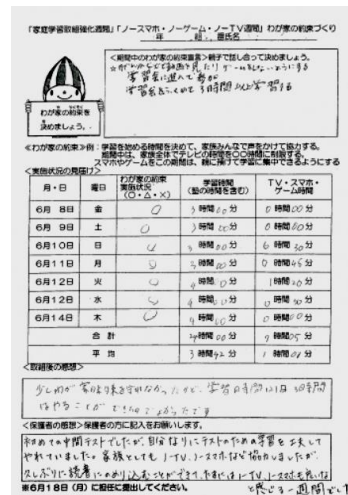 「家庭学習取組強化週間」「ノースマホ・ノーゲーム・ノーTV週間」わが家の約束づくり
年 組、氏名
<期間中のわが家の約束宣言>親子で話し合って決めましょう。
学習会に進んで参加
学習会をふくめて3時間以上学習する
わが家の約束を
決めましょう。
≪わが家の約束≫例：学習を始める時間を決めて、家族みんなで声をかけて協力する。
期間中は、家族全体でテレビの時間を〇〇時間に制限する。
スマホやゲームをこの期間は、親に預けて学習に集中できるようにする
<実施状況の見届け>
月・日 曜日 わが家の約束実施状況(〇・△・×) 学習時間(塾の時間を含む) TV・スマホ・ゲーム時間
6月 8日 金 〇 3時間00分 0時間00分
6月 9日 土 〇 3時間00分 0時間00分
6月10日 日 〇 時間00分 0時間30分
6月11日 月 〇 3時間00分 0時間45分
6月12日 火 〇 4時間0分 1時間20分
6月12日 水 〇 4時間 分 0時間30分
6月14日 木 〇 4時間00分 時間00分
合 計 時間00分 時間05分
平 均 3時間42分 1時間01分
<取組後の感想>
少し約束を守れなかったけど、学習時間は1日3時間
はやることができたのでよかったです
<保護者の感想>保護者の方に記入をお願いします。
初めての中間テストでしたが、自分なりにテストのための学習を工夫して
やれていました。家族としてもノーTV、ノースマホなど協力しましたが、
久しぶりに読書にのめり込むことができて、たまにはノーTV、ノースマホも良いな
と感じる一週間でした
※6月18日（月）に担任に提出してください。